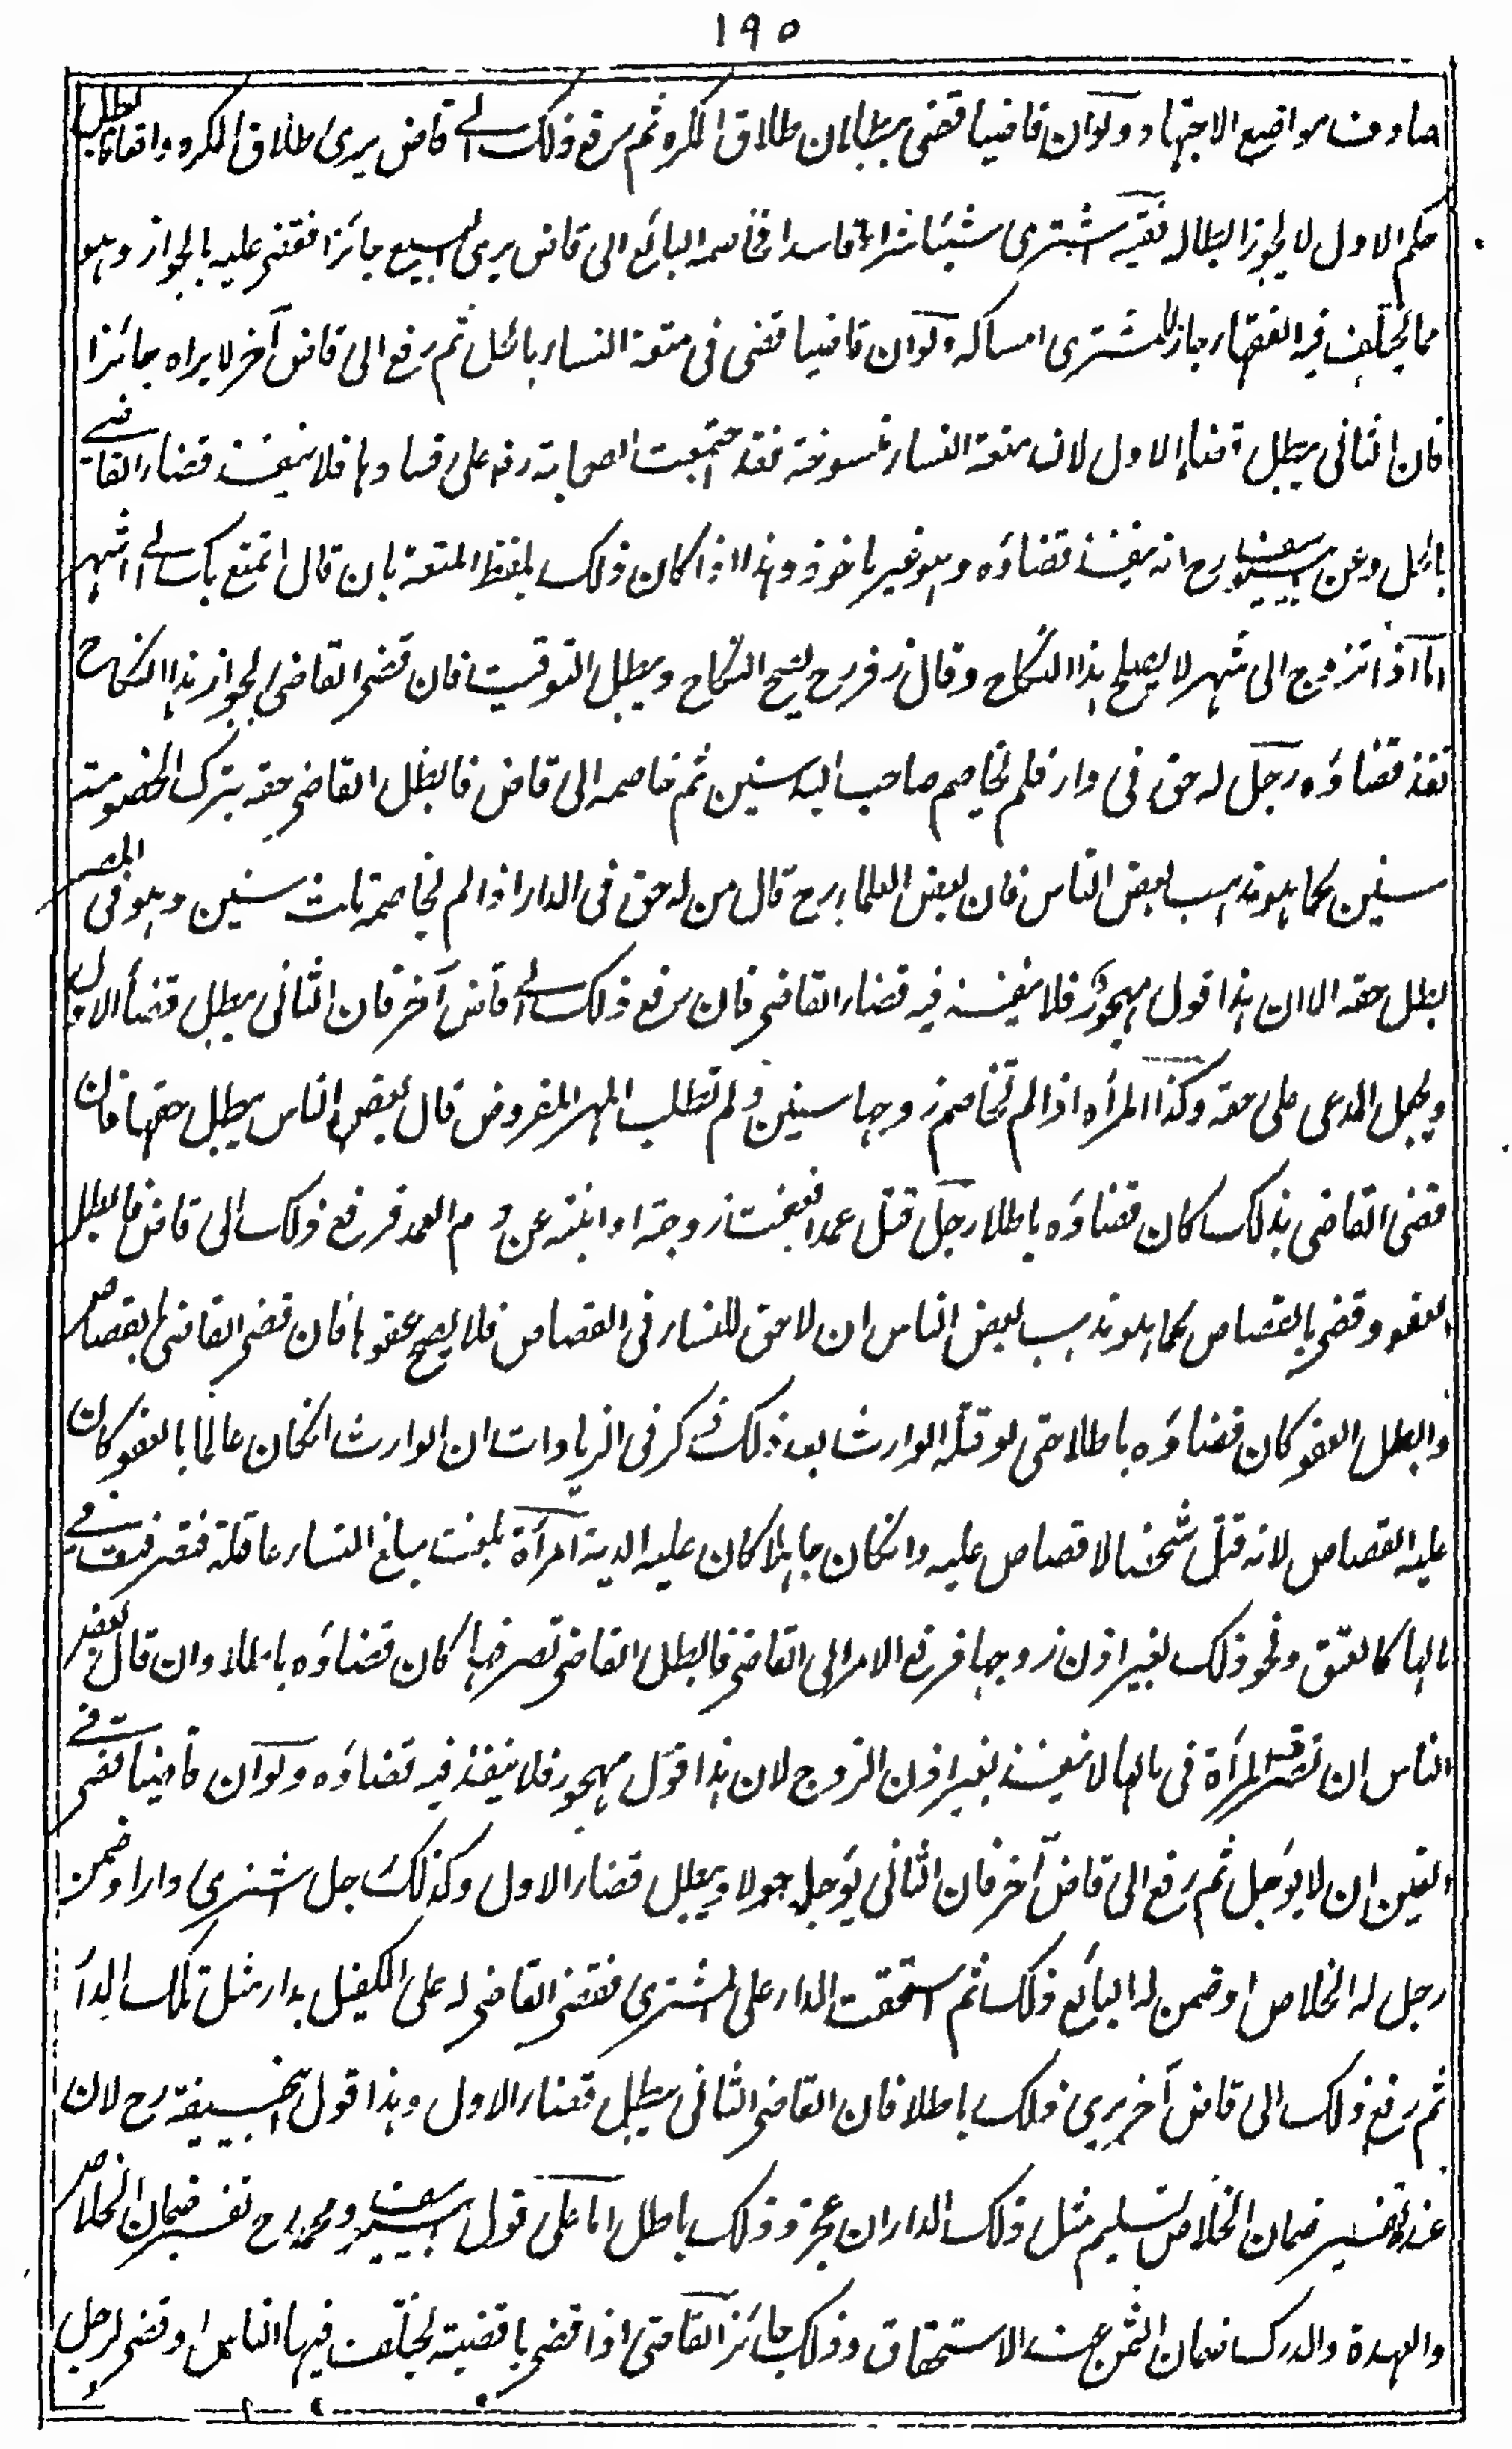 ١٩٥
صادفت مواضع الاجتهاد ولو ان قاضيا قضى ببطلان طلاق المكره ثم رفع ذلك الى قاض يرى طلاق المكره واقعا فابطل
حكم الاول لا يجوز ابطاله فقيه اشترى شيئا شراء فاسدا فخاصمه البائع الى قاض يرى البيع جائزا فقضى عليه بالجواز وهو
مما يختلف فيه الفقهاء جاز للمشترى امساكه ولو ان قاضيا قضى فى متعة النساء بالحل ثم رفع الى قاض آخر لا يراه جائزا
فان الثانى يبطل قضاء الاول لان متعة النساء منسوخة فقد اجتمعت الصحابة رض على فسادها فلا ينفذ قضاء القاضى
بالحل وعن ابى يوسف رح انه ينفذ قضاؤه وهو غير ماخوذ وهذا اذا كان ذلك بلفظ المتعة بان قال اتمتع بك الى اشهر
اما اذا تزوج الى شهر لا يصلح هذا النكاح وقال زفر رح يصح النكاح ويبطل التوقيت فان قضى القاضى بجواز هذا النكاح
نفذ قضاؤه رجل له حق فى دار فلم يخاصم صاحب اليد سنين ثم خاصمه الى قاض فابطل القاضى حقه بترك الخصومة
سنين كما هو مذهب بعض الناس فان بعض العلماء رح قال من له حق فى الدار اذا لم يخاصم ثلث سنين وهو فى المصر
بطل حقه الا ان هذا قول مهجور فلا ينفذ فيه قضاء القاضى فان رفع ذلك الى قاض آخر فان الثانى يبطل قضاء الاول
ويجعل المدعى على حقه وكذا المرأة اذا لم تخاصم زوجها سنين ولم تطلب المهر المفروض قال بعض الناس يبطل حقها فان
قضى القاضى بذلك كان قضاؤه باطلا رجل قتل عمدا فعفت زوجته او ابنته عن دم العمد فرفع ذلك الى قاض فابطل
العفو وقضى بالقصاص كما هو مذهب بعض الناس ان لا حق للنساء فى القصاص فلا يصح عفوها فان قضى القاضى بالقصاص
وابطل العفو كان قضاؤه باطلا حتى لو قتله الوارث بعد ذلك ذكر فى الزيادات ان الوارث انكان عالما بالعفو كان
عليه القصاص لانه قتل شخصا لا قصاص عليه وانكان جاهلا كان عليه الدية امرأة بلغت مبلغ النساء عاقلة فتصرفت فى
مالها كالعتق ونحو ذلك بغير اذن زوجها فرفع الامر الى القاضى فابطل القاضى تصرفها كان قضاؤه باطلا وان قال بعض
الناس ان تصرف المرأة فى مالها لا ينفذ بغير اذن الزوج لان هذا قول مهجور فلا ينفذ فيه قضاؤه ولو ان قاضيا قضى فى
العنين ان لا يؤجل ثم رفع الى قاض آخر فان الثانى يؤجل حولا ويبطل قضاء الاول وكذلك رجل اشترى دارا وضمن
رجل له الخلاص او ضمن له البائع ذلك ثم استحقت الدار على المشترى فقضى القاضى له على الكفيل بدار مثل تلك الدار
ثم رفع ذلك الى قاض آخر يرى ذلك باطلا فان القاضى الثانى يبطل قضاء الاول وهذا قول ابى حنيفة رح لان
عنده تفسير ضمان الخلاص تسليم مثل ذلك الدار ان عجز وذلك باطل اما على قول ابى يوسف ومحمد رح تفسير ضمان الخلاص
والعهدة والدرك ضمان الثمن عند الاستحقاق وذلك جائز القاضى اذا قضى باقضية يختلف فيها الناس او قضى لرجل